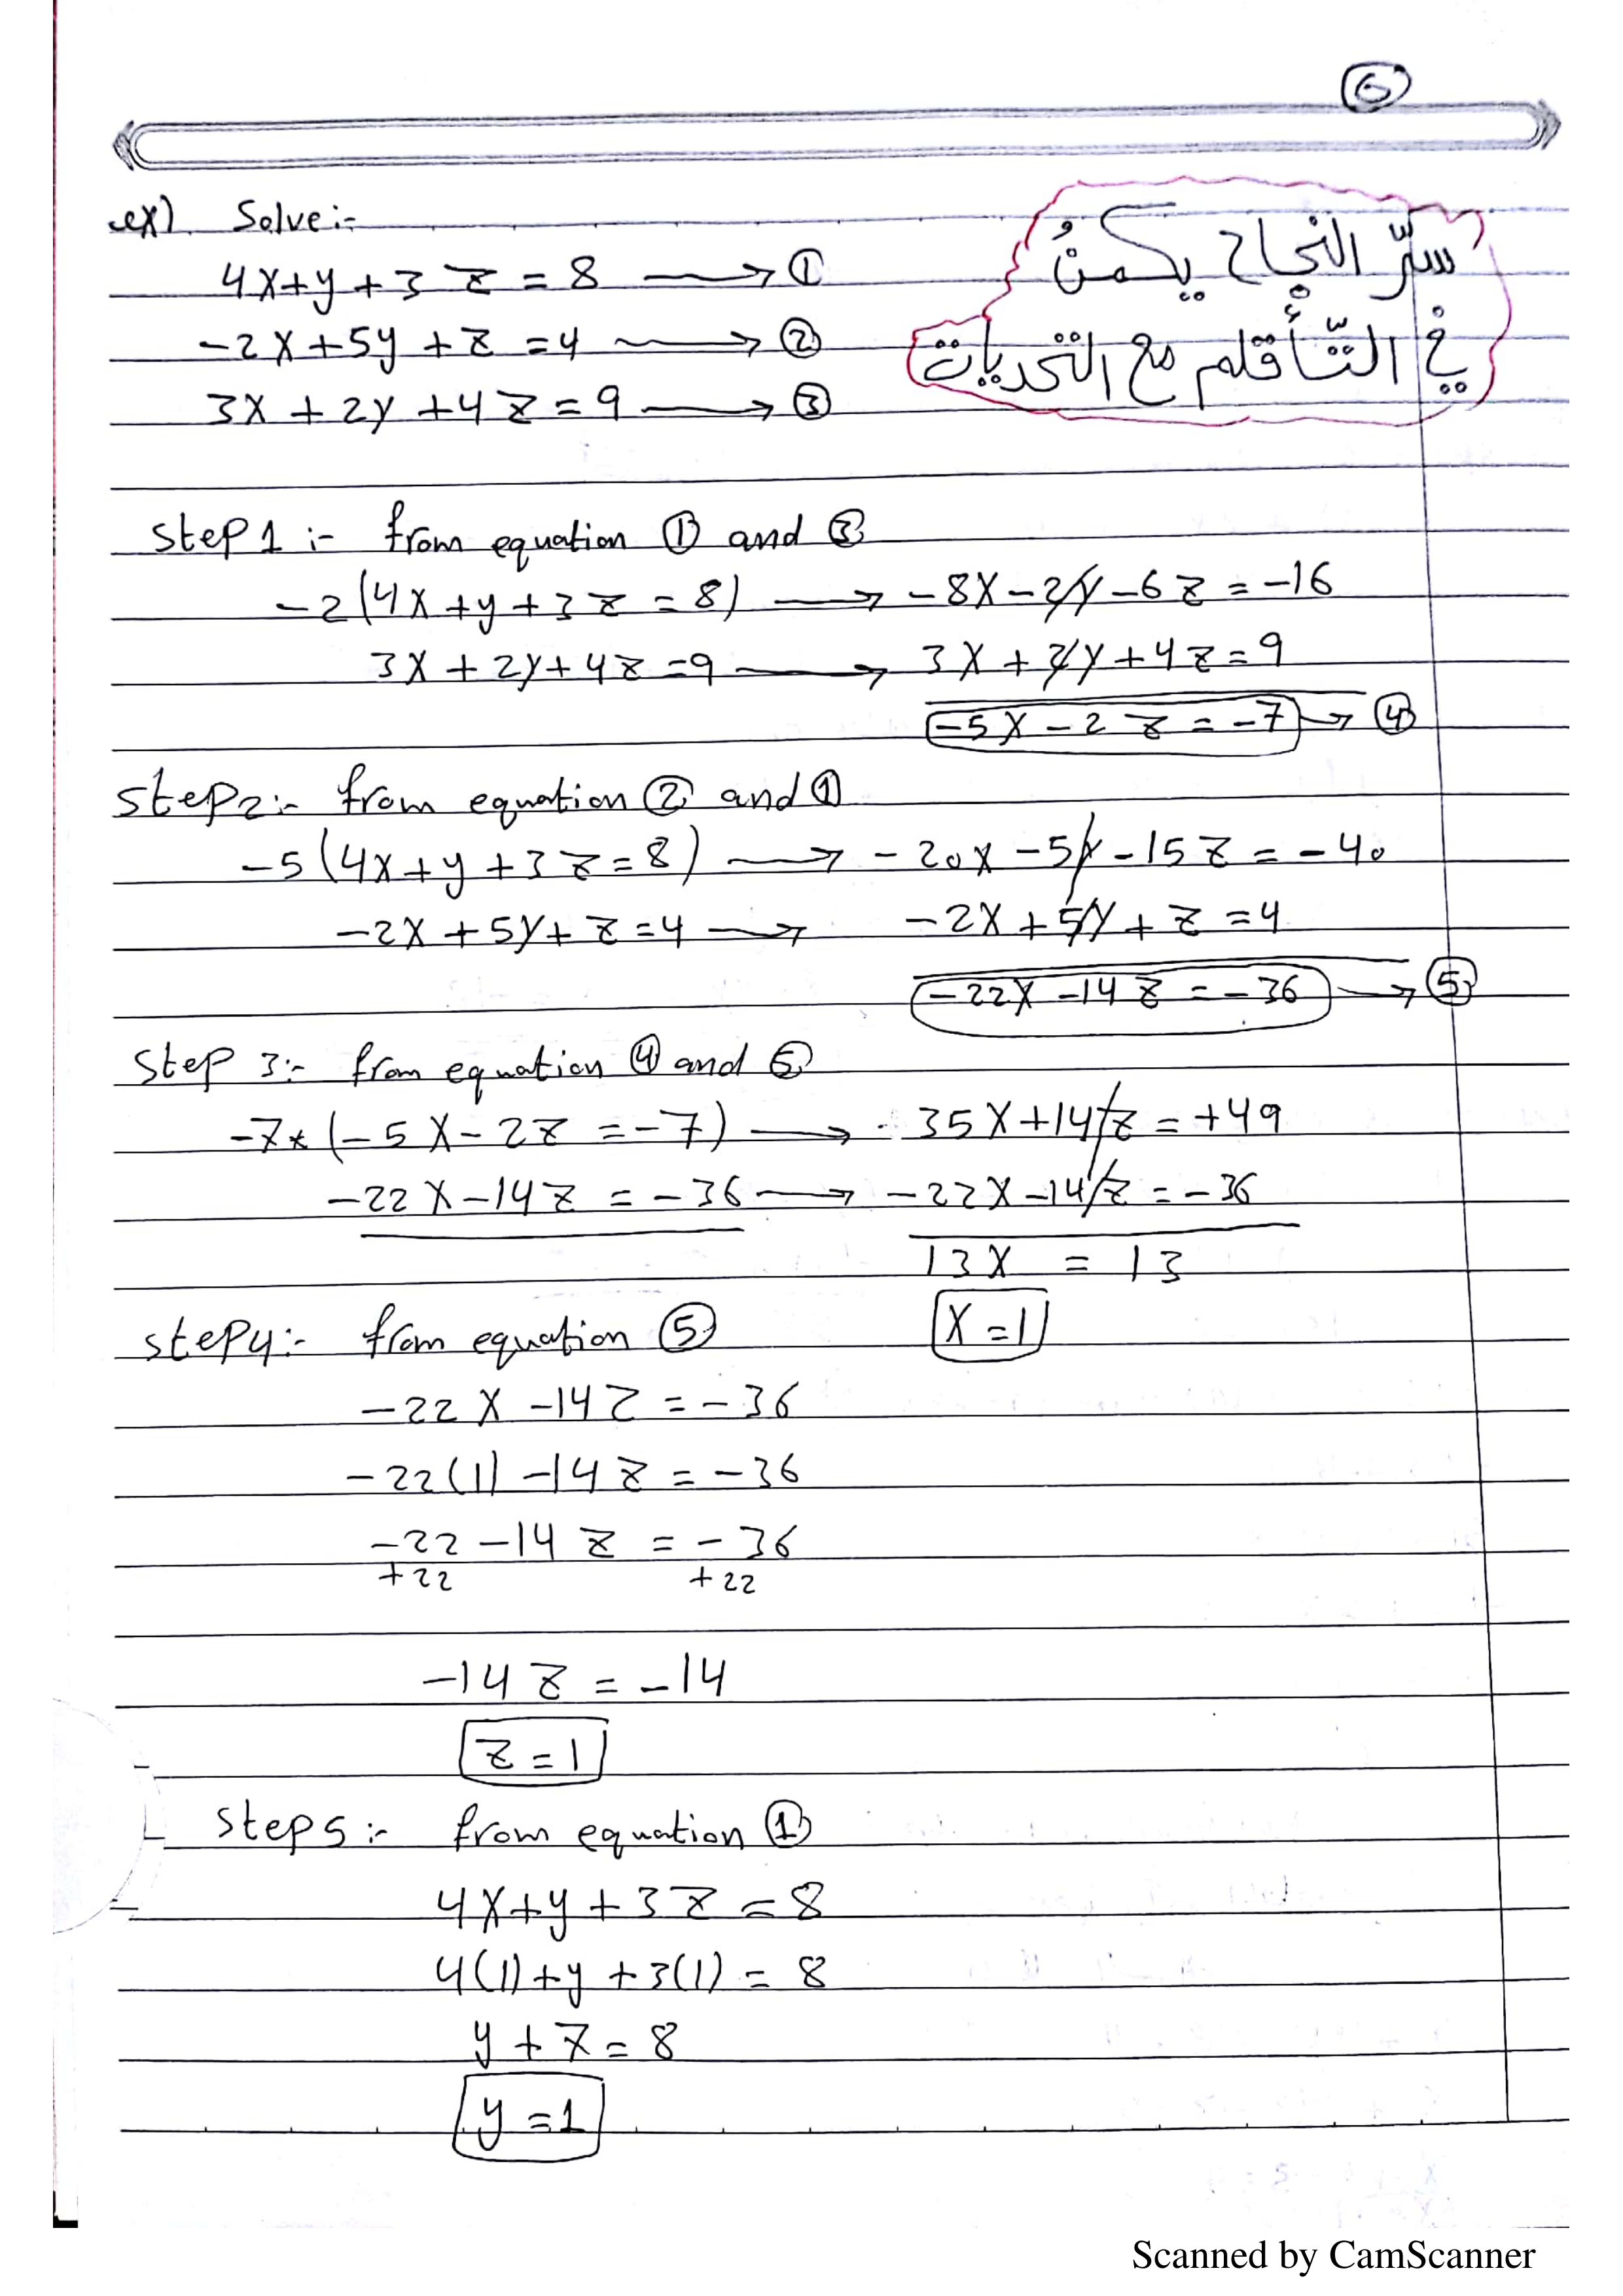 6
ex) Solve:-
4x+y+3z=8 → ①
-2x+5y+z=4 → ②
3x+2y+4z=9 → ③
سرّ النجاح يكمنُ
في التّأقلم مع التحديات
step 1 :- from equation ① and ③
-2(4x+y+3z=8) → -8x-2y-6z=-16
3x+2y+4z=9 → 3x+2y+4z=9
-5x-2z=-7 → ④
step2:- from equation ② and ①
-5(4x+y+3z=8) → -20x-5y-15z=-40
-2x+5y+z=4 → -2x+5y+z=4
-22x-14z=-36 → ⑤
step 3:- from equation ④ and ⑤
-7*(-5x-2z=-7) → 35x+14z=+49
-22x-14z=-36 → -22x-14z=-36
13x = 13
x=1
step4:- from equation ⑤
-22x-14z=-36
-22(1)-14z=-36
-22-14z=-36
+22 +22
-14z=-14
z=1
step5:- from equation ①
4x+y+3z=8
4(1)+y+3(1)=8
y+7=8
y=1
Scanned by CamScanner